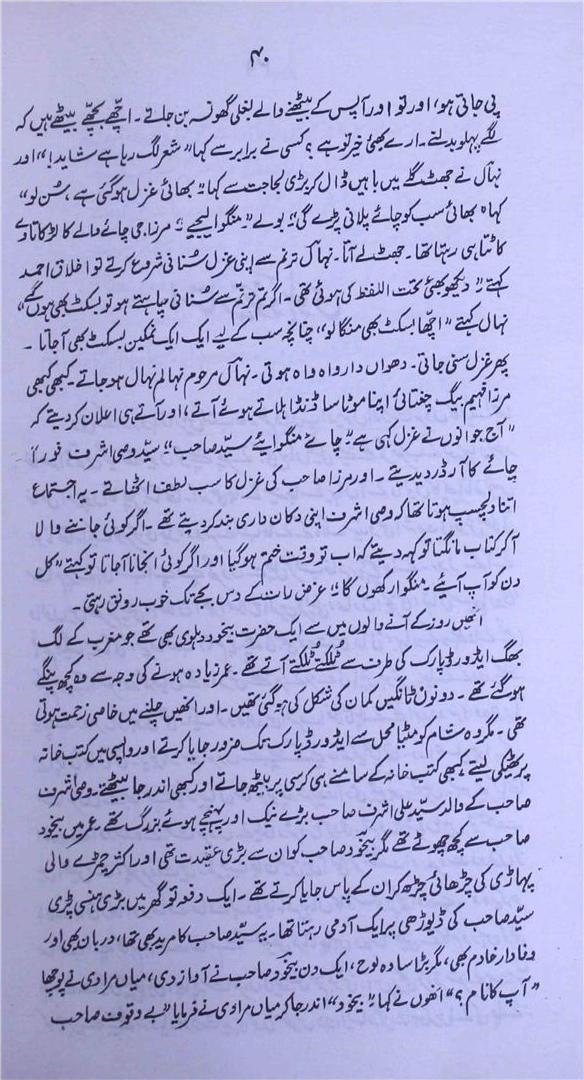 ۴۰
پی جاتی ہو، اور تو اور آپس کے بیٹھنے والے بغلی گھونسہ بن جاتے۔ اچھے بچھے بیٹھے ہیں کہ
لگے پہلو بدلنے۔ ارے بھئی خیر تو ہے؟ کسی نے برابر سے کہا "شعر لگ رہا ہے شاید!" اور
نہال نے جھٹ گلے میں باہیں ڈال کر بڑی لجاجت سے کہا "بھائی غزل ہو گئی ہے، سُن لو"
کہا "بھائی سب کو چائے پلانی پڑے گی" بولے "منگوا لیجیے"۔ مرزا جی چائے والے کا لڑکا تاوے
کاٹتا ہی رہتا تھا۔ جھٹ لے آتا۔ نہال ترنم سے اپنی غزل سُنانی شروع کرتے تو اخلاق احمد
کہتے "دیکھو بھئی تحت اللفظ کی ہوئی تھی۔ اگر تم ترنم سے سُنانی چاہتے ہو تو بسکٹ بھی ہوں گے"
نہال کہتے "اچھا بسکٹ بھی منگا لو" چنانچہ سب کے لیے ایک ایک نمکین بسکٹ بھی آ جاتا۔
پھر غزل سنی جاتی۔ دھواں دار واہ واہ ہوتی۔ نہال مرحوم نہالم نہال ہو جاتے۔ کبھی کبھی
مرزا فہیم بیگ چغتائی اپنا موٹا سا ڈنڈا ہلاتے ہوئے آتے، اور آتے ہی اعلان کر دیتے کہ
"آج جوانوں نے غزل کہی ہے"۔ چائے منگوائیے سیّد صاحب" سیّد وصی اشرف فوراً
چائے کا آرڈر دیدیتے۔ اور مرزا صاحب کی غزل کا سب لطف اٹھاتے۔ یہ اجتماع
اتنا دلچسپ ہوتا تھا کہ وصی اشرف اپنی دکان داری بند کر دیتے تھے۔ اگر کوئی جاننے والا
آ کر کتاب مانگتا تو کہہ دیتے کہ اب تو وقت ختم ہو گیا اور اگر کوئی انجانا آ جاتا تو کہتے "کل
دن کو آپ آئیے۔ منگوا رکھوں گا"؛ غرض رات کے دس بجے تک خوب رونق رہتی۔
انھیں روز کے آنے والوں میں سے ایک حضرت بیخود دہلوی بھی تھے جو مغرب کے لگ
بھگ ایڈورڈ پارک کی طرف سے ٹُھلکتے ٹُھلکتے آتے تھے۔ عمر زیادہ ہونے کی وجہ سے وہ کچھ پنگے
ہو گئے تھے۔ دونوں ٹانگیں کمان کی شکل کی ہو گئی تھیں۔ اور انھیں چلنے میں خاصی زحمت ہوتی
تھی۔ مگر وہ شام کو مٹیا محل سے ایڈورڈ پارک تک ضرور جایا کرتے اور واپسی میں کتب خانہ
پر ٹھیکی لیتے، کبھی کتب خانہ کے سامنے ہی کرسی پر بیٹھ جاتے اور کبھی اندر جا بیٹھتے۔ وصی اشرف
صاحب کے والد سیّد علی اشرف صاحب بڑے نیک اور پہنچے ہوئے بزرگ تھے، عمر میں بیخود
صاحب سے کچھ چھوٹے تھے مگر بیخود صاحب کو ان سے بڑی عقیدت تھی اور اکثر چمڑے والی
پہاڑی کی چڑھائی چڑھ کر ان کے پاس جایا کرتے تھے۔ ایک دفعہ تو گھر میں بڑی ہنسی پڑی
سیّد صاحب کی ڈیوڑھی پر ایک آدمی رہتا تھا۔ یہ سیّد صاحب کا مرید بھی تھا، دربان بھی اور
وفادار خادم بھی، مگر بڑا سادہ لوح، ایک دن بیخود صاحب نے آواز دی، میاں مرادی نے پوچھا
"آپ کا نام؟" انھوں نے کہا "بیخود" اندر جا کر میاں مرادی نے فرمایا "بے وقوف صاحب